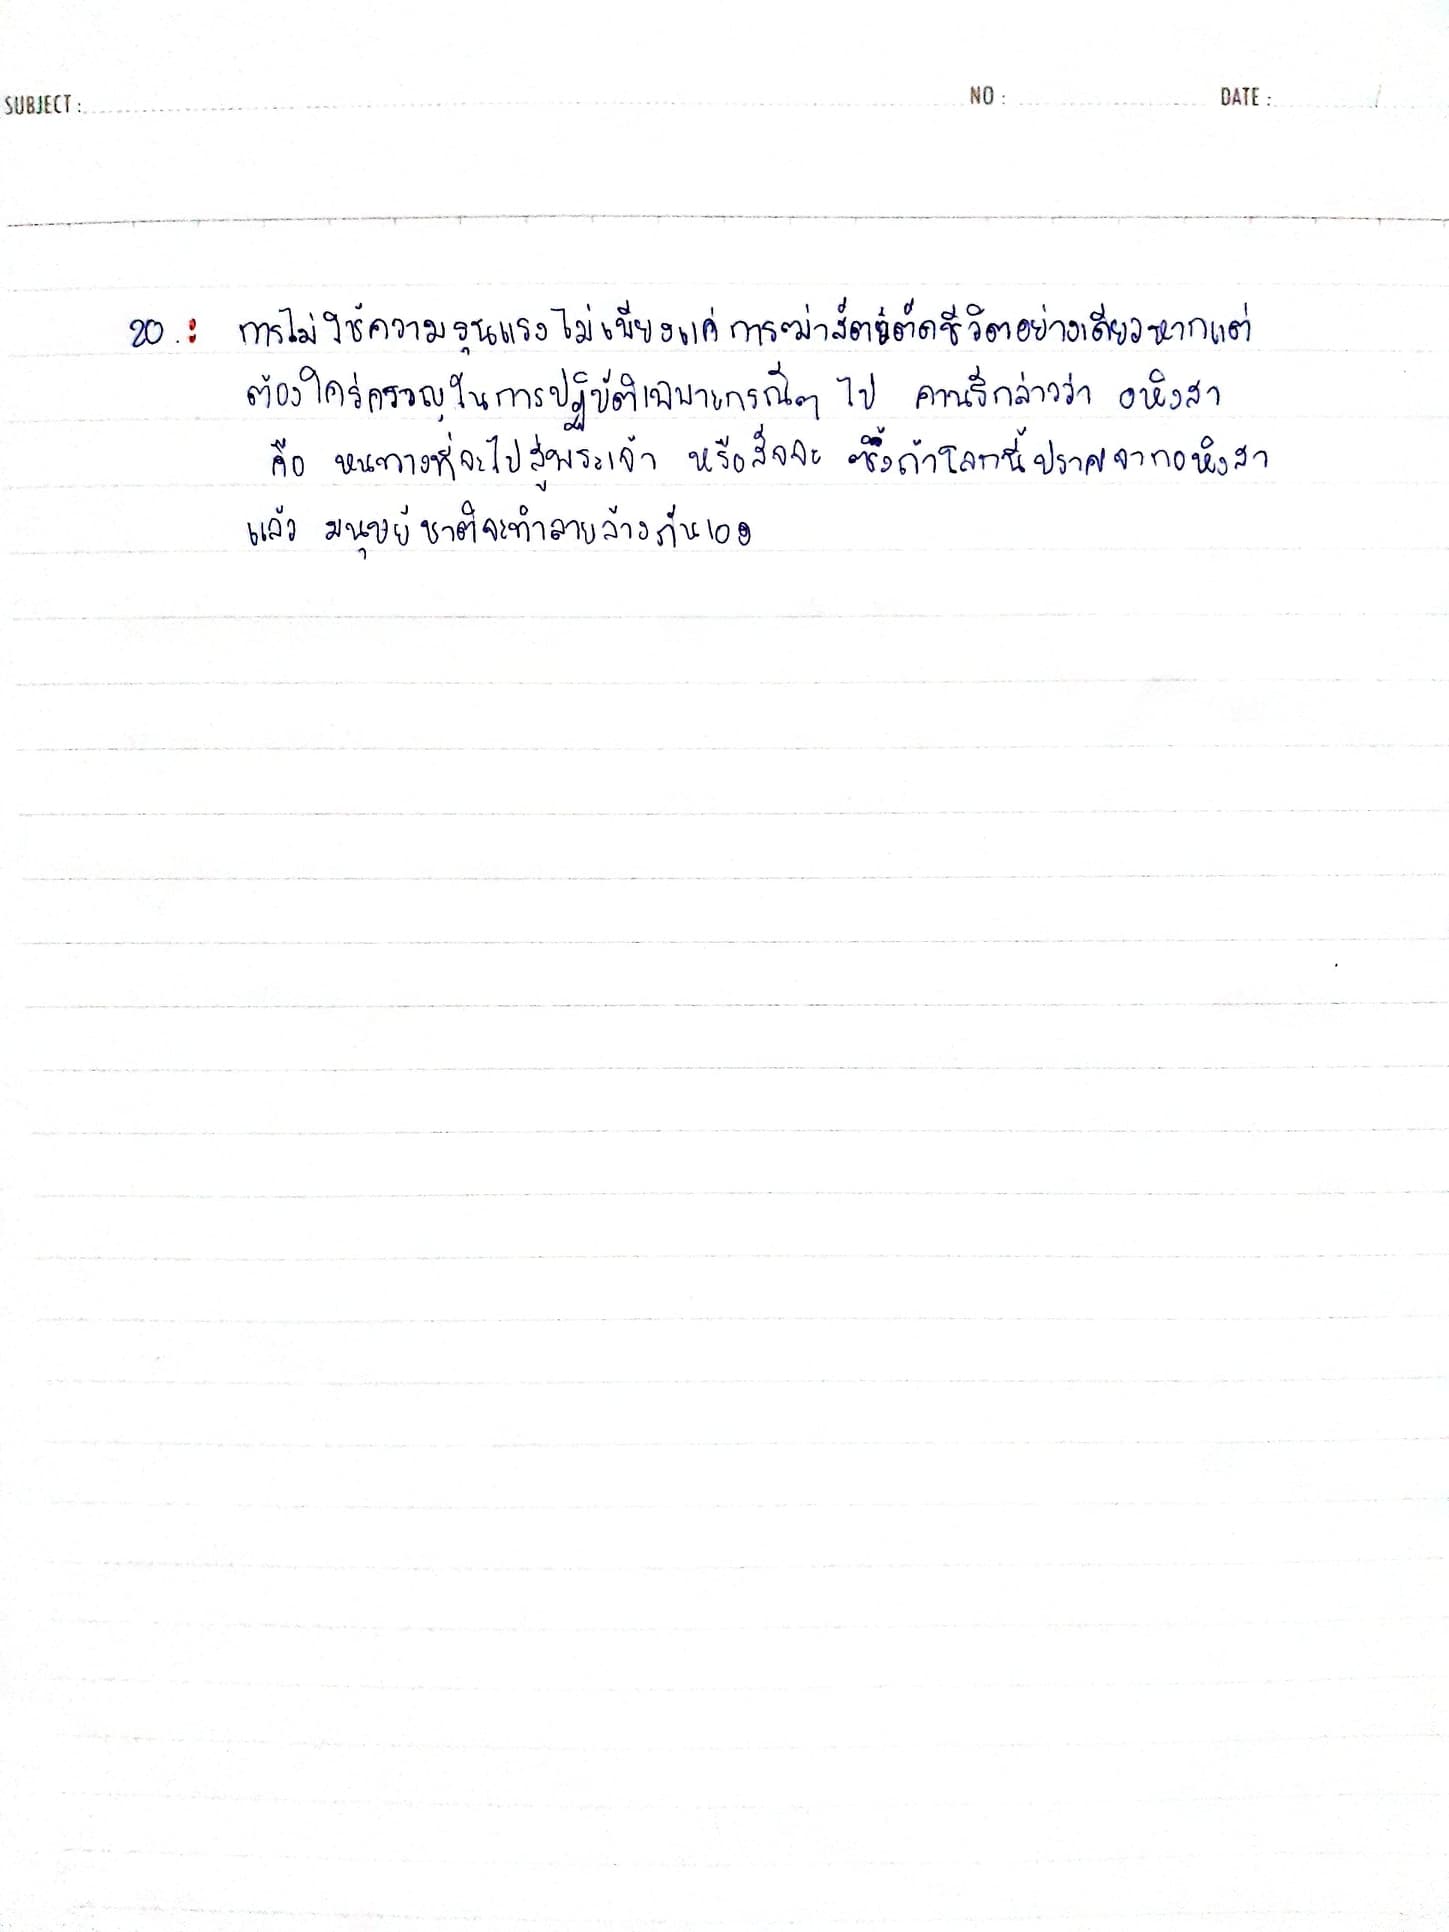 SUBJECT : NO : DATE :
20. : การไม่ใช้ความรุนแรง ไม่เพียงแค่ การฆ่าสัตว์ตัดชีวิตอย่างเดียวหากแต่
ต้องใคร่ครวญในการปฏิบัติเฉพาะกรณีๆ ไป คานธีกล่าวว่า อหิงสา
คือ หนทางที่จะไปสู่พระเจ้า หรือสัจจะ ซึ่งถ้าโลกนี้ปราศจากอหิงสา
แล้ว มนุษย์ชาติจะทำลายล้างกันเอง